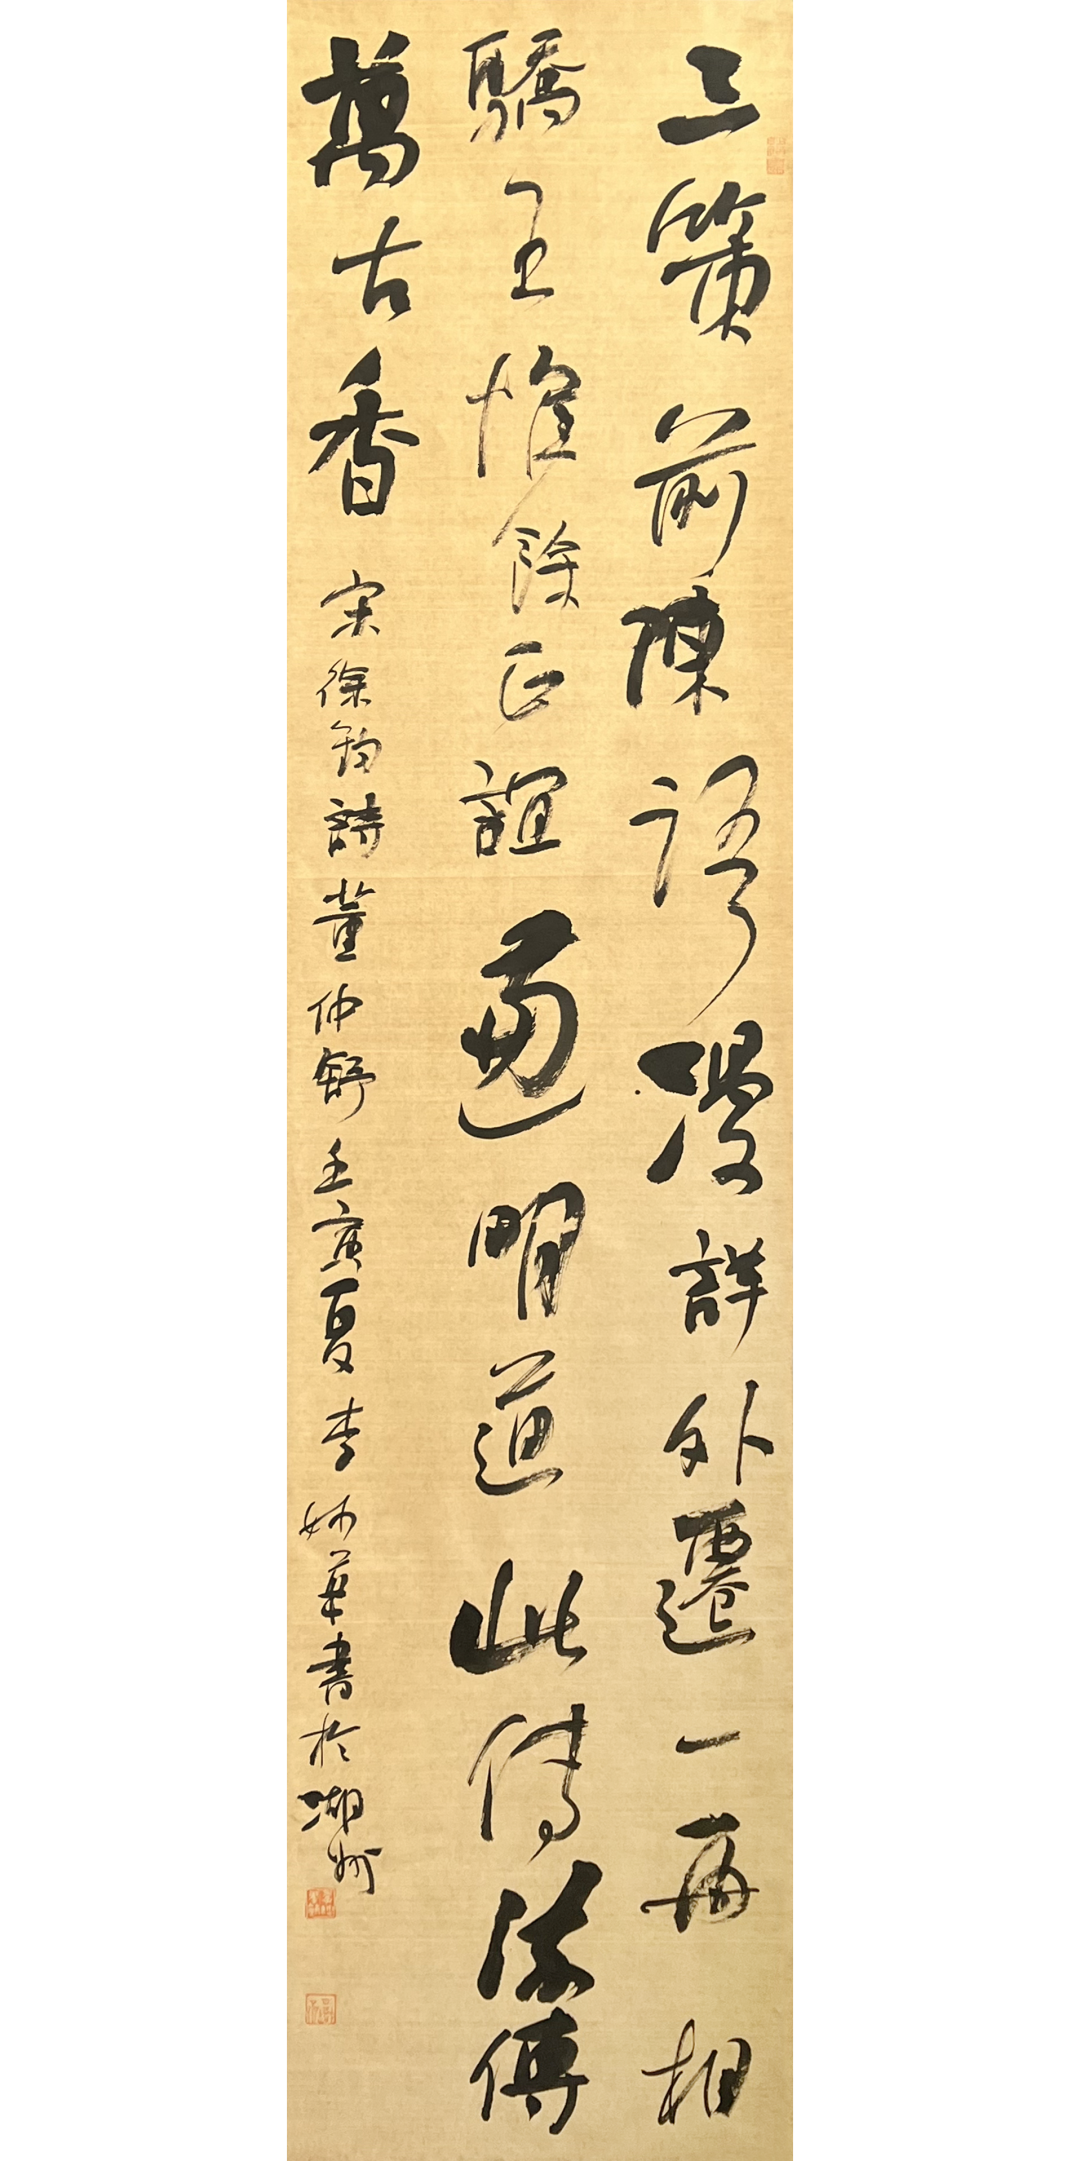 三策前陳語漫詳外遷一再相
驕王惟餘正誼明道此流傳
萬古香
宋徐鈞詩董仲舒壬寅夏李華書於湖州